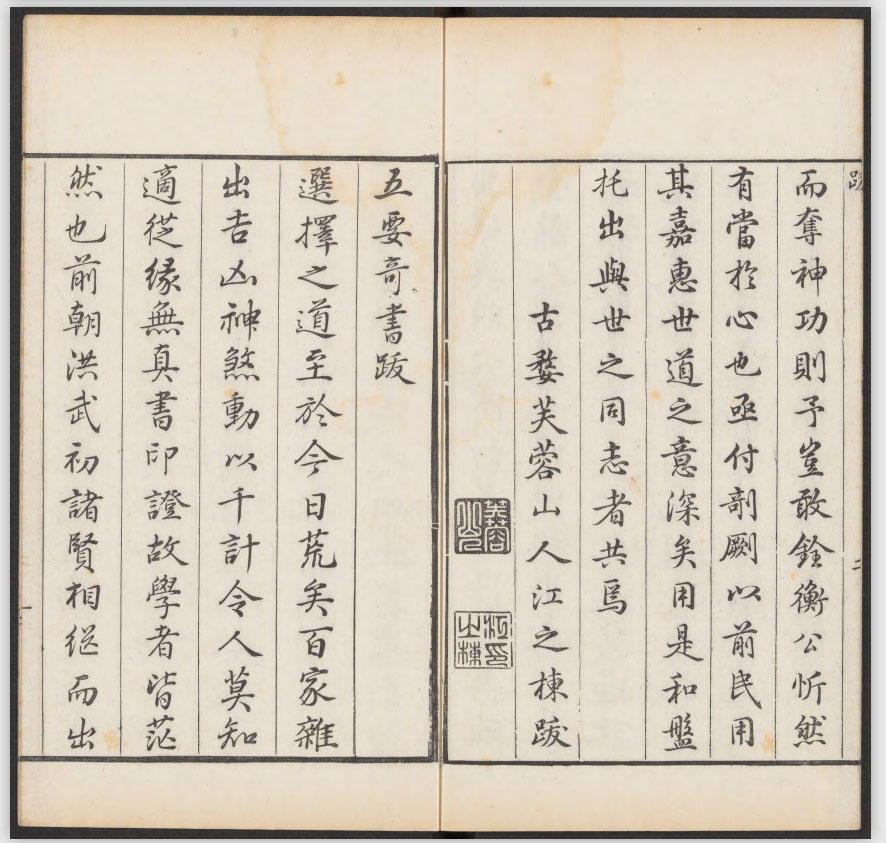 跋
而奪神功則予豈敢銓衡公忻然
有當於心也亟付剞劂以前民用
其嘉惠世道之意深矣用是和盤
托出與世之同志者共焉
古婺芙蓉山人江之棟跋
芙蓉山人
江之棟印
二
五要奇書跋
選擇之道至於今日荒矣百家雜
出吉凶神煞動以千計令人莫知
適從緣無真書印證故學者皆茫
然也前朝洪武初諸賢相繼而出
一